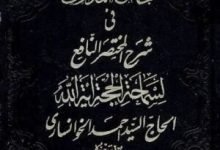 فی
شرح المختصر النافع
لسماحة الحجة آية الله
الحاج السید احمد الخوانساری